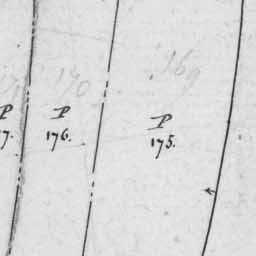 170
169
P
7.
P
176.
P
175.